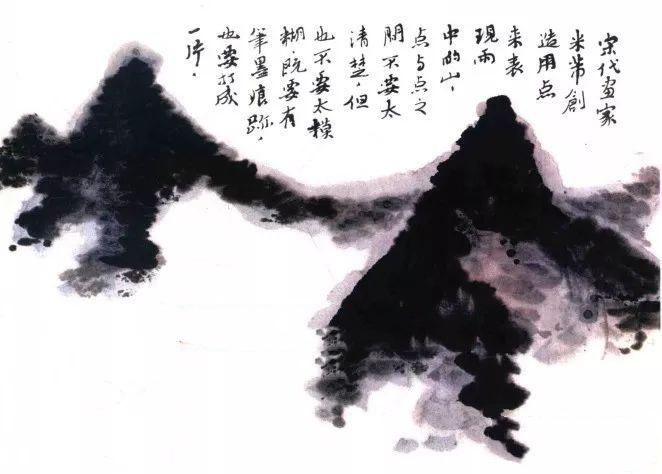 宋代画家
米芾創
造用点
来表
現雨
中的山，
点与点之
間不要太
清楚，但
也不要太模
糊既要有
筆墨痕跡，
也要打成
一片．